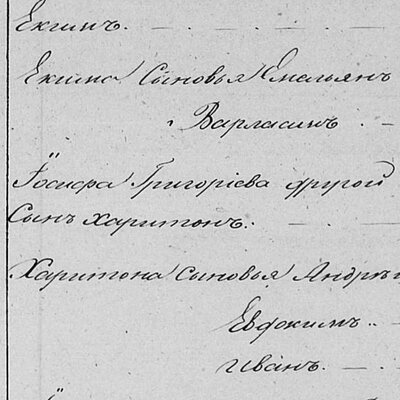 Екимъ.
Екима Сыновья Емельянъ
Варласинъ
Іосифа Григоріева другой
Сынъ Харитонъ.
Харитона сыновья Андрѣ
Евдокимъ.
Иванъ.